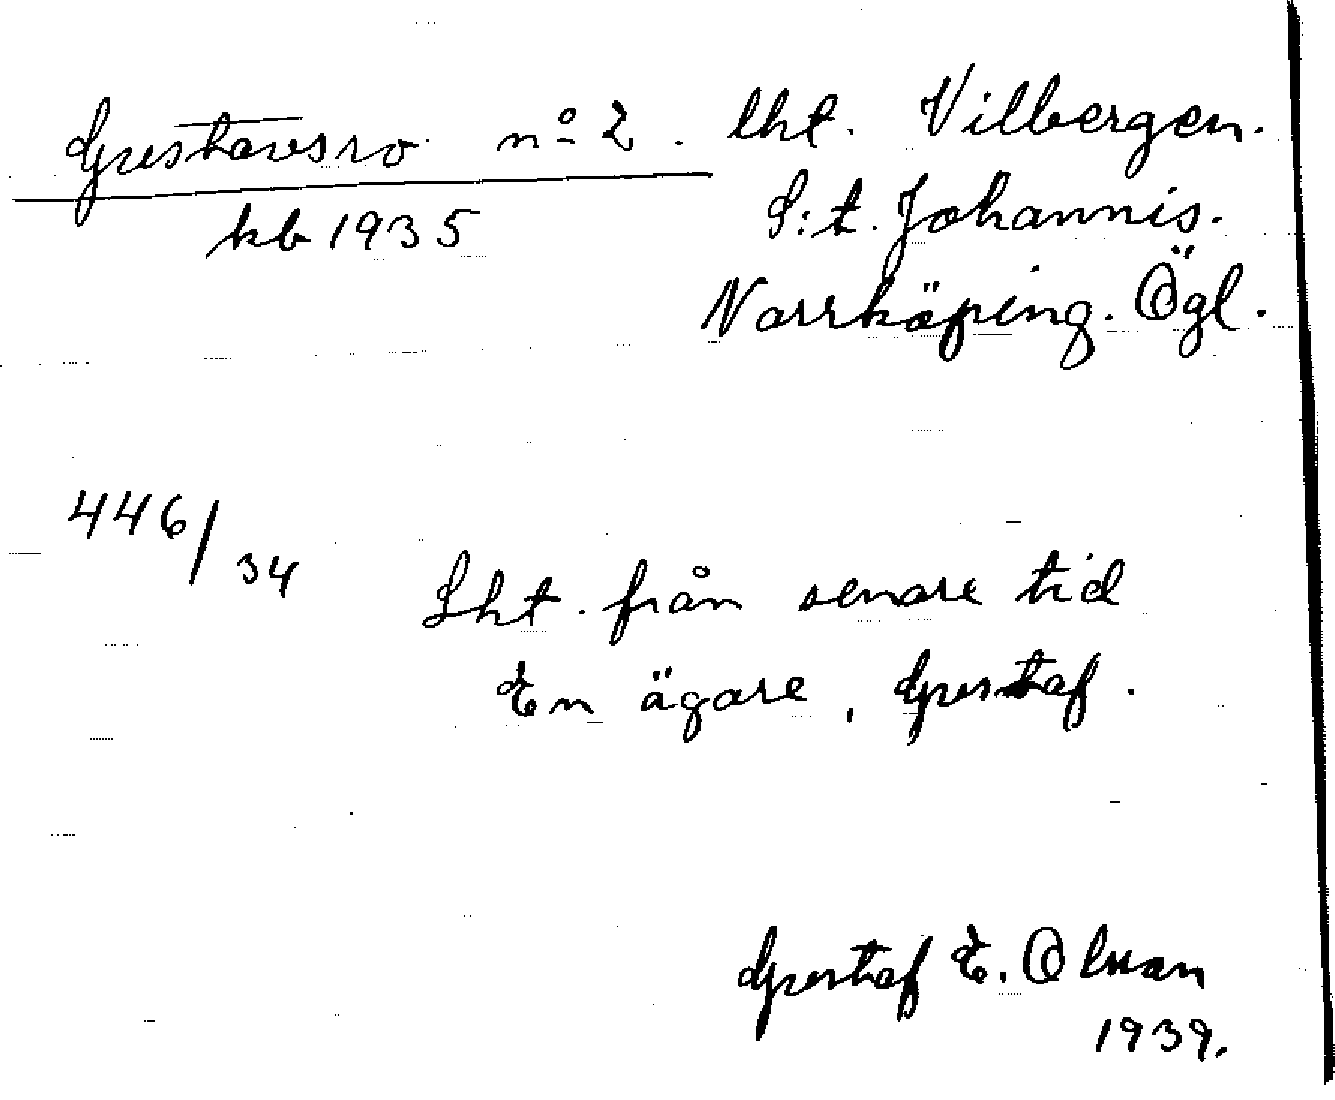 Gustavsro nº 2. lht. Vilbergen.
kb 1935 S:t. Johannis.
Norrköping. Ögl.
446/34
Lht. från senare tid
En ägare, Gustaf.
Gustaf E. Olsson
1939.